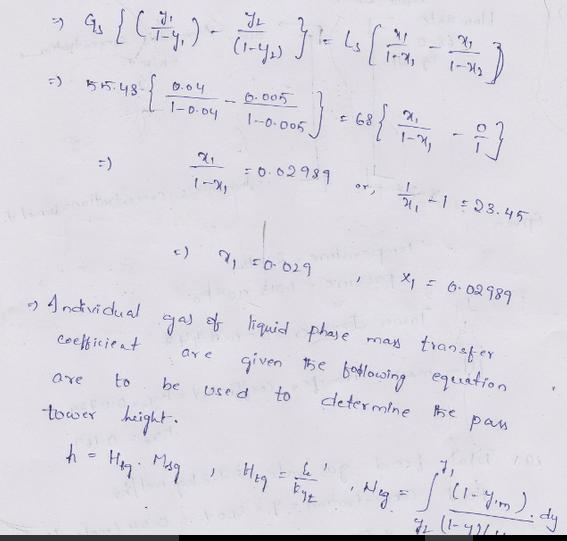 ⇒ Gs { (y1/1-y1) - y2/(1-y2) } = Ls { x1/1-x1 - x2/1-x2 }
⇒ 55.48 { 0.04/1-0.04 - 0.005/1-0.005 } = 68 { x1/1-x1 - 0/1 }
⇒ x1/1-x1 = 0.02989 or, 1/x1 - 1 = 23.45
⇒ x1 = 0.029 , X1 = 0.02989
⇒ Individual gas & liquid phase mass transfer
coefficient are given the following equation
are to be used to determine the pass
tower height.
h = Htg . Ntg , Htg = G'/kyz , Ntg = ∫ y1 y2 (1-yim) . dy / (1-y)(